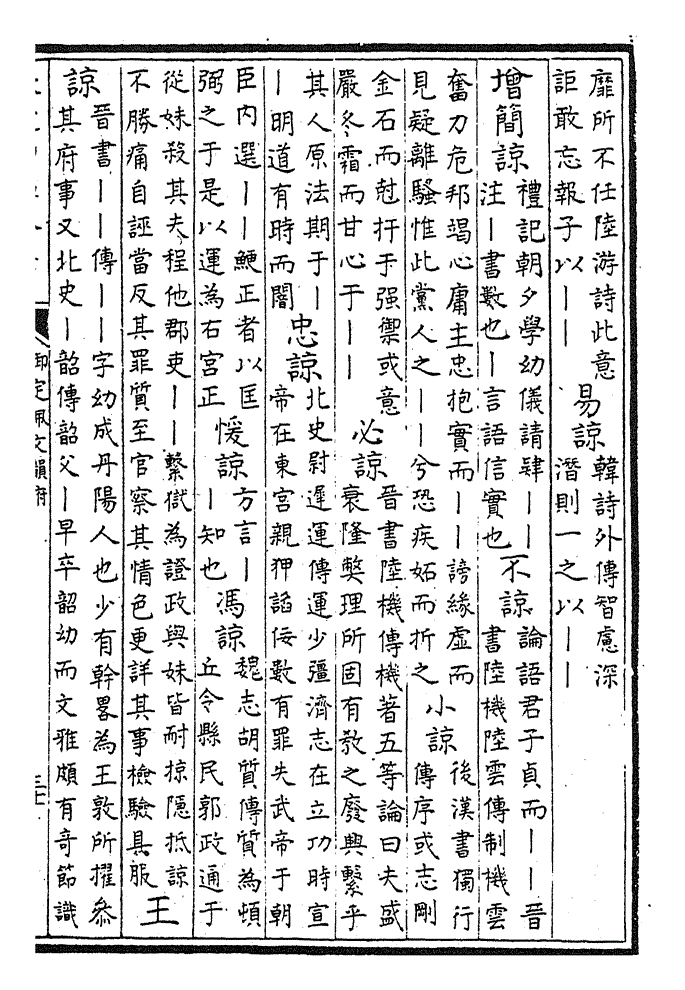 靡所不任陸游詩此意
詎敢忘報子以丨丨
易諒
韓詩外傳智慮深
潛則一之以丨丨
增簡諒
禮記朝夕學幼儀請肄丨丨
注丨書數也丨言語信實也
不諒
論語君子貞而丨丨晉
書陸機陸雲傳制機雲
奮力危邦竭心庸主忠抱實而丨丨謗緣虛而
見疑離騷惟此黨人之丨丨兮恐疾妬而折之
小諒
後漢書獨行
傳序或志剛
金石而尅扞于强禦或意
嚴冬霜而甘心于丨丨
必諒
晉書陸機傳機著五等論曰夫盛
衰隆獘理所固有教之廢興繫乎
其人原法期于丨
丨明道有時而闇
忠諒
北史尉遲運傳運少彊濟志在立功時宣
帝在東宮親狎諂佞數有罪失武帝于朝
臣内選丨丨鯁正者以匡
弼之于是以運為右宮正
愋諒
方言丨
丨知也
馮諒
魏志胡質傳質為頓
丘令縣民郭政通于
從妹殺其夫程他郡吏丨丨繫獄為證政與妹皆耐掠隱抵諒
不勝痛自誣當反其罪質至官察其情色更詳其事檢驗具服
王
諒
晉書丨丨傳丨丨字幼成丹陽人也少有幹畧為王敦所擢叅
其府事又北史丨韶傳韶父丨早卒韶幼而文雅頗有奇節識
御定佩文韻府